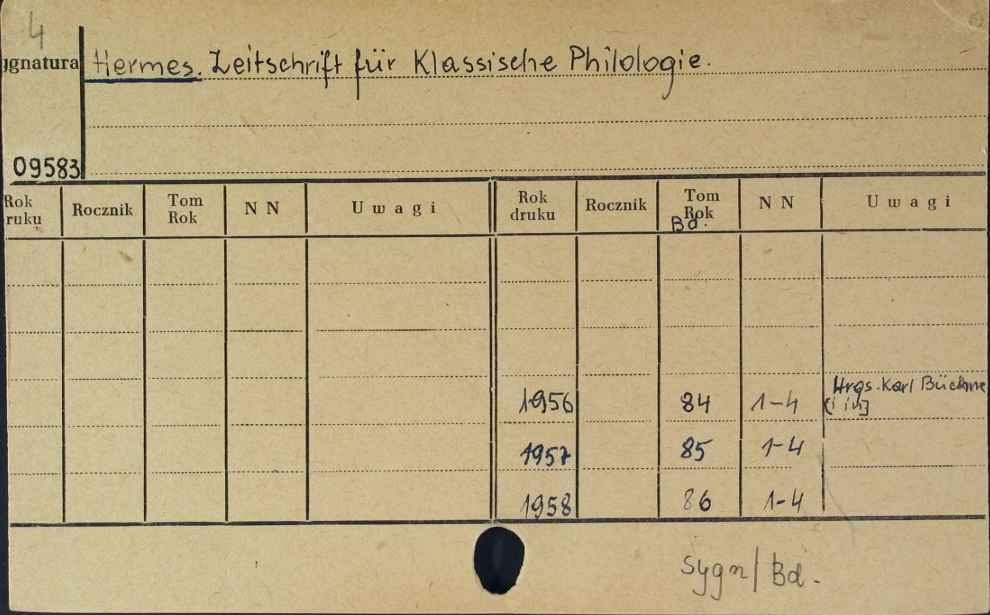 4
ygnatura Hermes. Zeitschrift für Klassische Philologie.
09583
Rok
ruku Rocznik Tom
Rok N N U w a g i Rok
druku Rocznik Tom
Rok
Bd. N N U w a g i
1956 84 1-4 Hrgs. Karl Büchne
[i in]
1957 85 1-4
1958 86 1-4
Sygn/Bd.